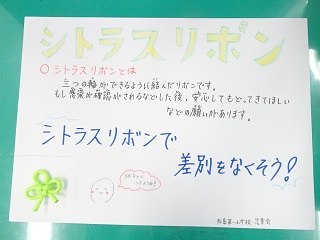 シトラスリボン
〇 シトラスリボンとは
三つの輪ができるように結んだリボンです。
もし感染が確認がされるなどした後、安心してもどってきてほしい
などの願いがあります。
シトラスリボンで
差別をなくそう!